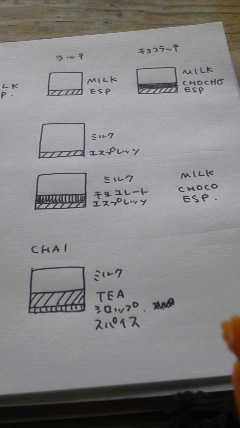 ラッテ
チョコラッテ
LK
P.
MILK
ESP
MILK
CHOCHO
ESP
ミルク
エスプレッソ
ミルク
チョコレート
エスプレッソ
MILK
CHOCO
ESP.
CHAI
ミルク
TEA
シロップ.
スパイス